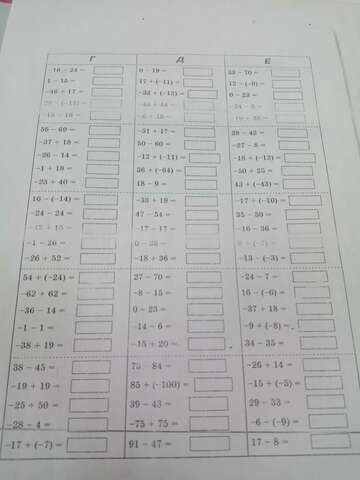 Г Д Е
-16 - 24 = 0 - 19 = 33 - 70 =
1 - 15 = 17 + (-11) = 12 - (-9) =
-46 + 17 = -32 + (-13) = 0 - 23 =
56 - 60 = -31 + 17 = 28 - 42 =
-37 + 18 = 50 - 60 = -27 - 8 =
-26 - 14 = -12 + (-11) = -18 + (-13) =
-1 + 18 = 36 + (-64) = -50 + 25 =
-23 + 40 = 18 - 9 = 43 + (-43) =
16 - (-14) = -33 + 19 = -17 + (-10) =
-24 - 24 = 47 - 54 = 35 - 50 =
-42 + 15 = -17 - 17 = -16 - 36 =
-1 - 26 = 0 - 38 = 0 + (-7) =
-26 + 52 = -18 + 36 = -13 - (-3) =
54 + (-24) = 27 - 70 = -24 - 7 =
-62 + 62 = -8 - 15 = 16 - (-6) =
-36 - 14 = 0 - 23 = -37 + 18 =
-1 - 1 = -14 - 6 = -9 + (-8) =
-38 + 19 = -15 + 20 = 34 - 35 =
38 - 45 = 75 - 84 = -26 + 14 =
-19 + 19 = 85 + (-100) = -15 + (-5) =
-25 + 50 = 39 - 43 = 29 - 33 =
-28 - 4 = -75 + 75 = -6 - (-9) =
-17 + (-7) = 91 - 47 = 17 - 8 =